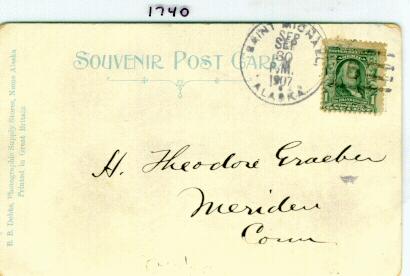 1740
SOUVENIR POST CARD
SAINT MICHAEL
SEP
SEP
30
P.M.
1907
ALASKA
H. Theodore Graeber
Meriden
Conn
B. B. Dobbs, Photographic Supply Stores, Nome Alaska
Printed in Great Britain